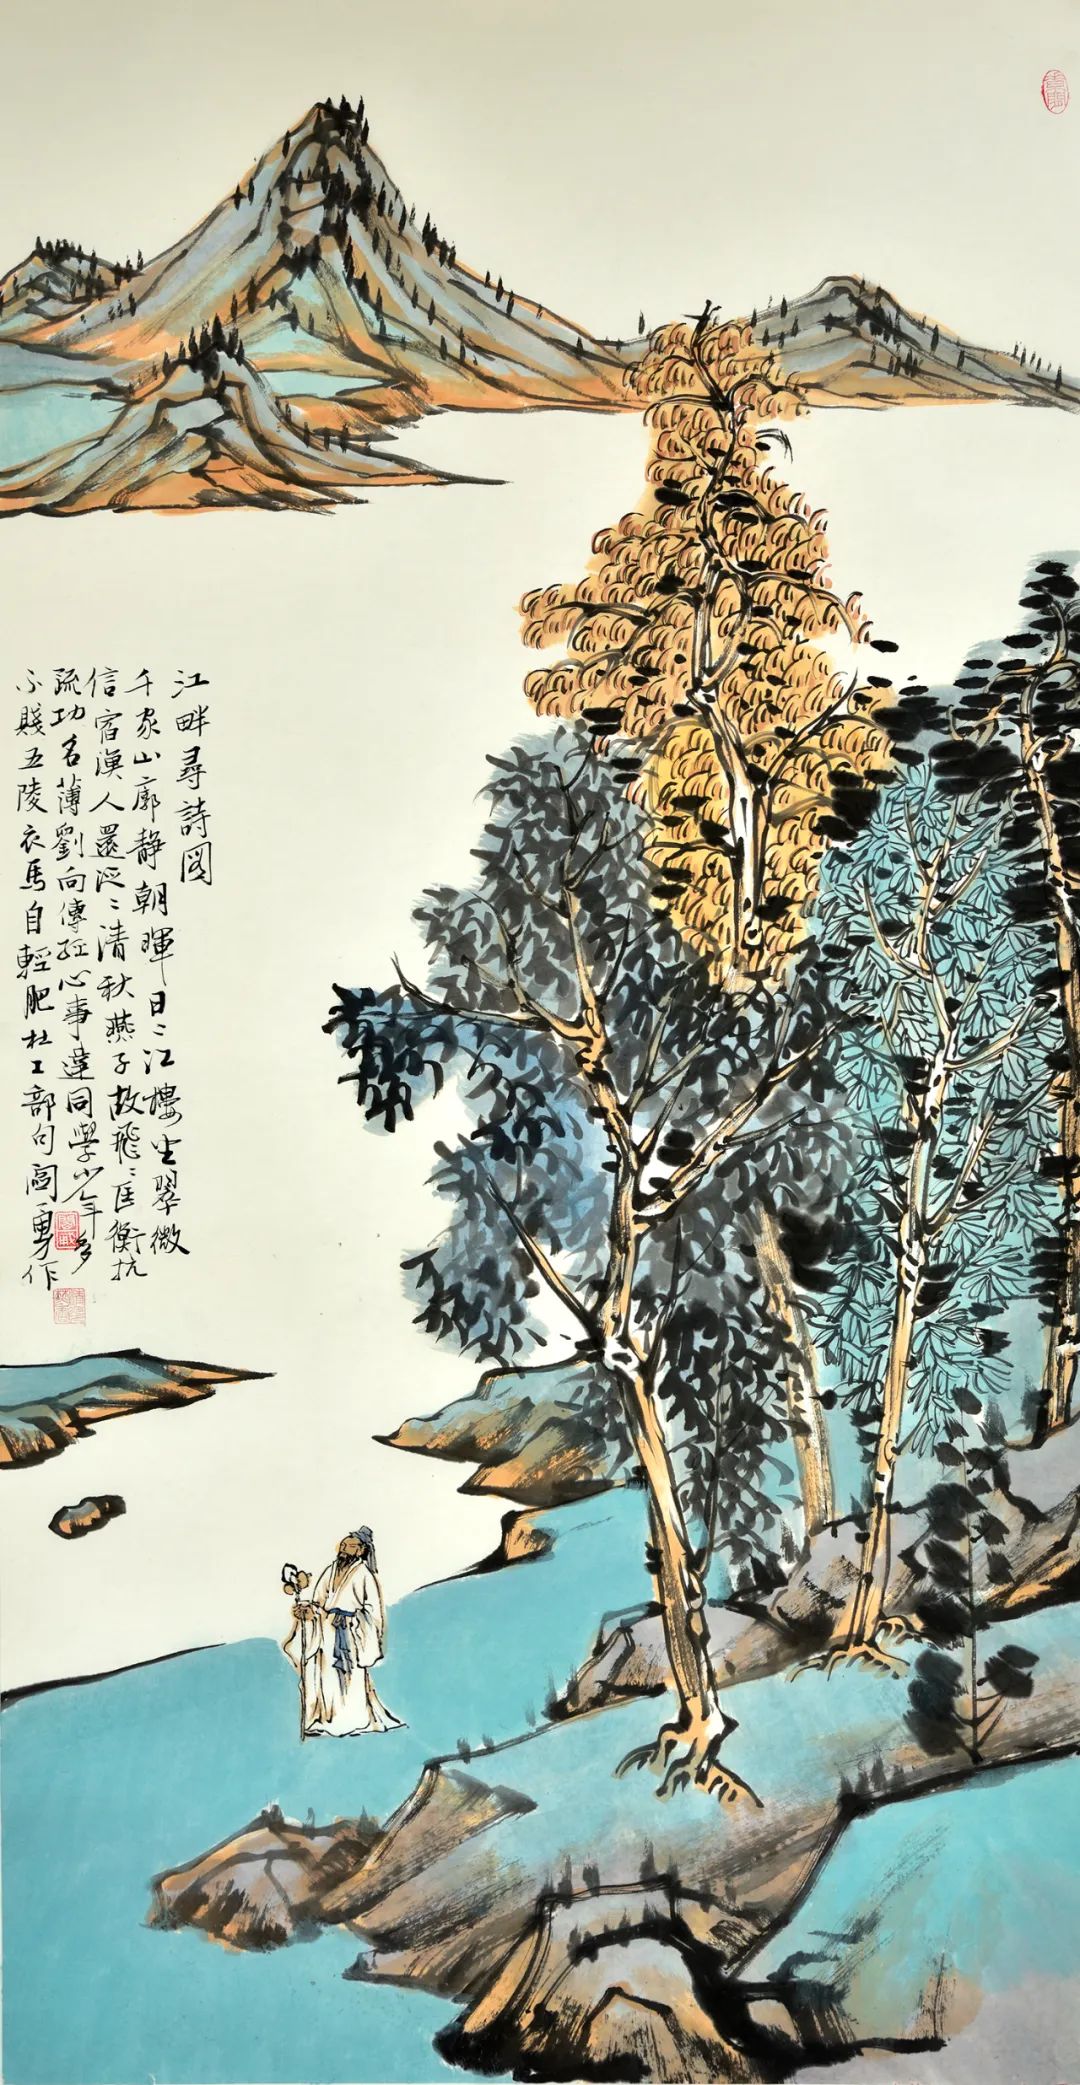 江畔尋詩圖
千家山廓静朝暉日〻江樓坐翠微
信宿漁人還泛〻清秋燕子故飛〻匡衡抗
疏功名薄劉向傳経心事違同學少年多
不賤五陵衣馬自輕肥杜工部句閻勇作